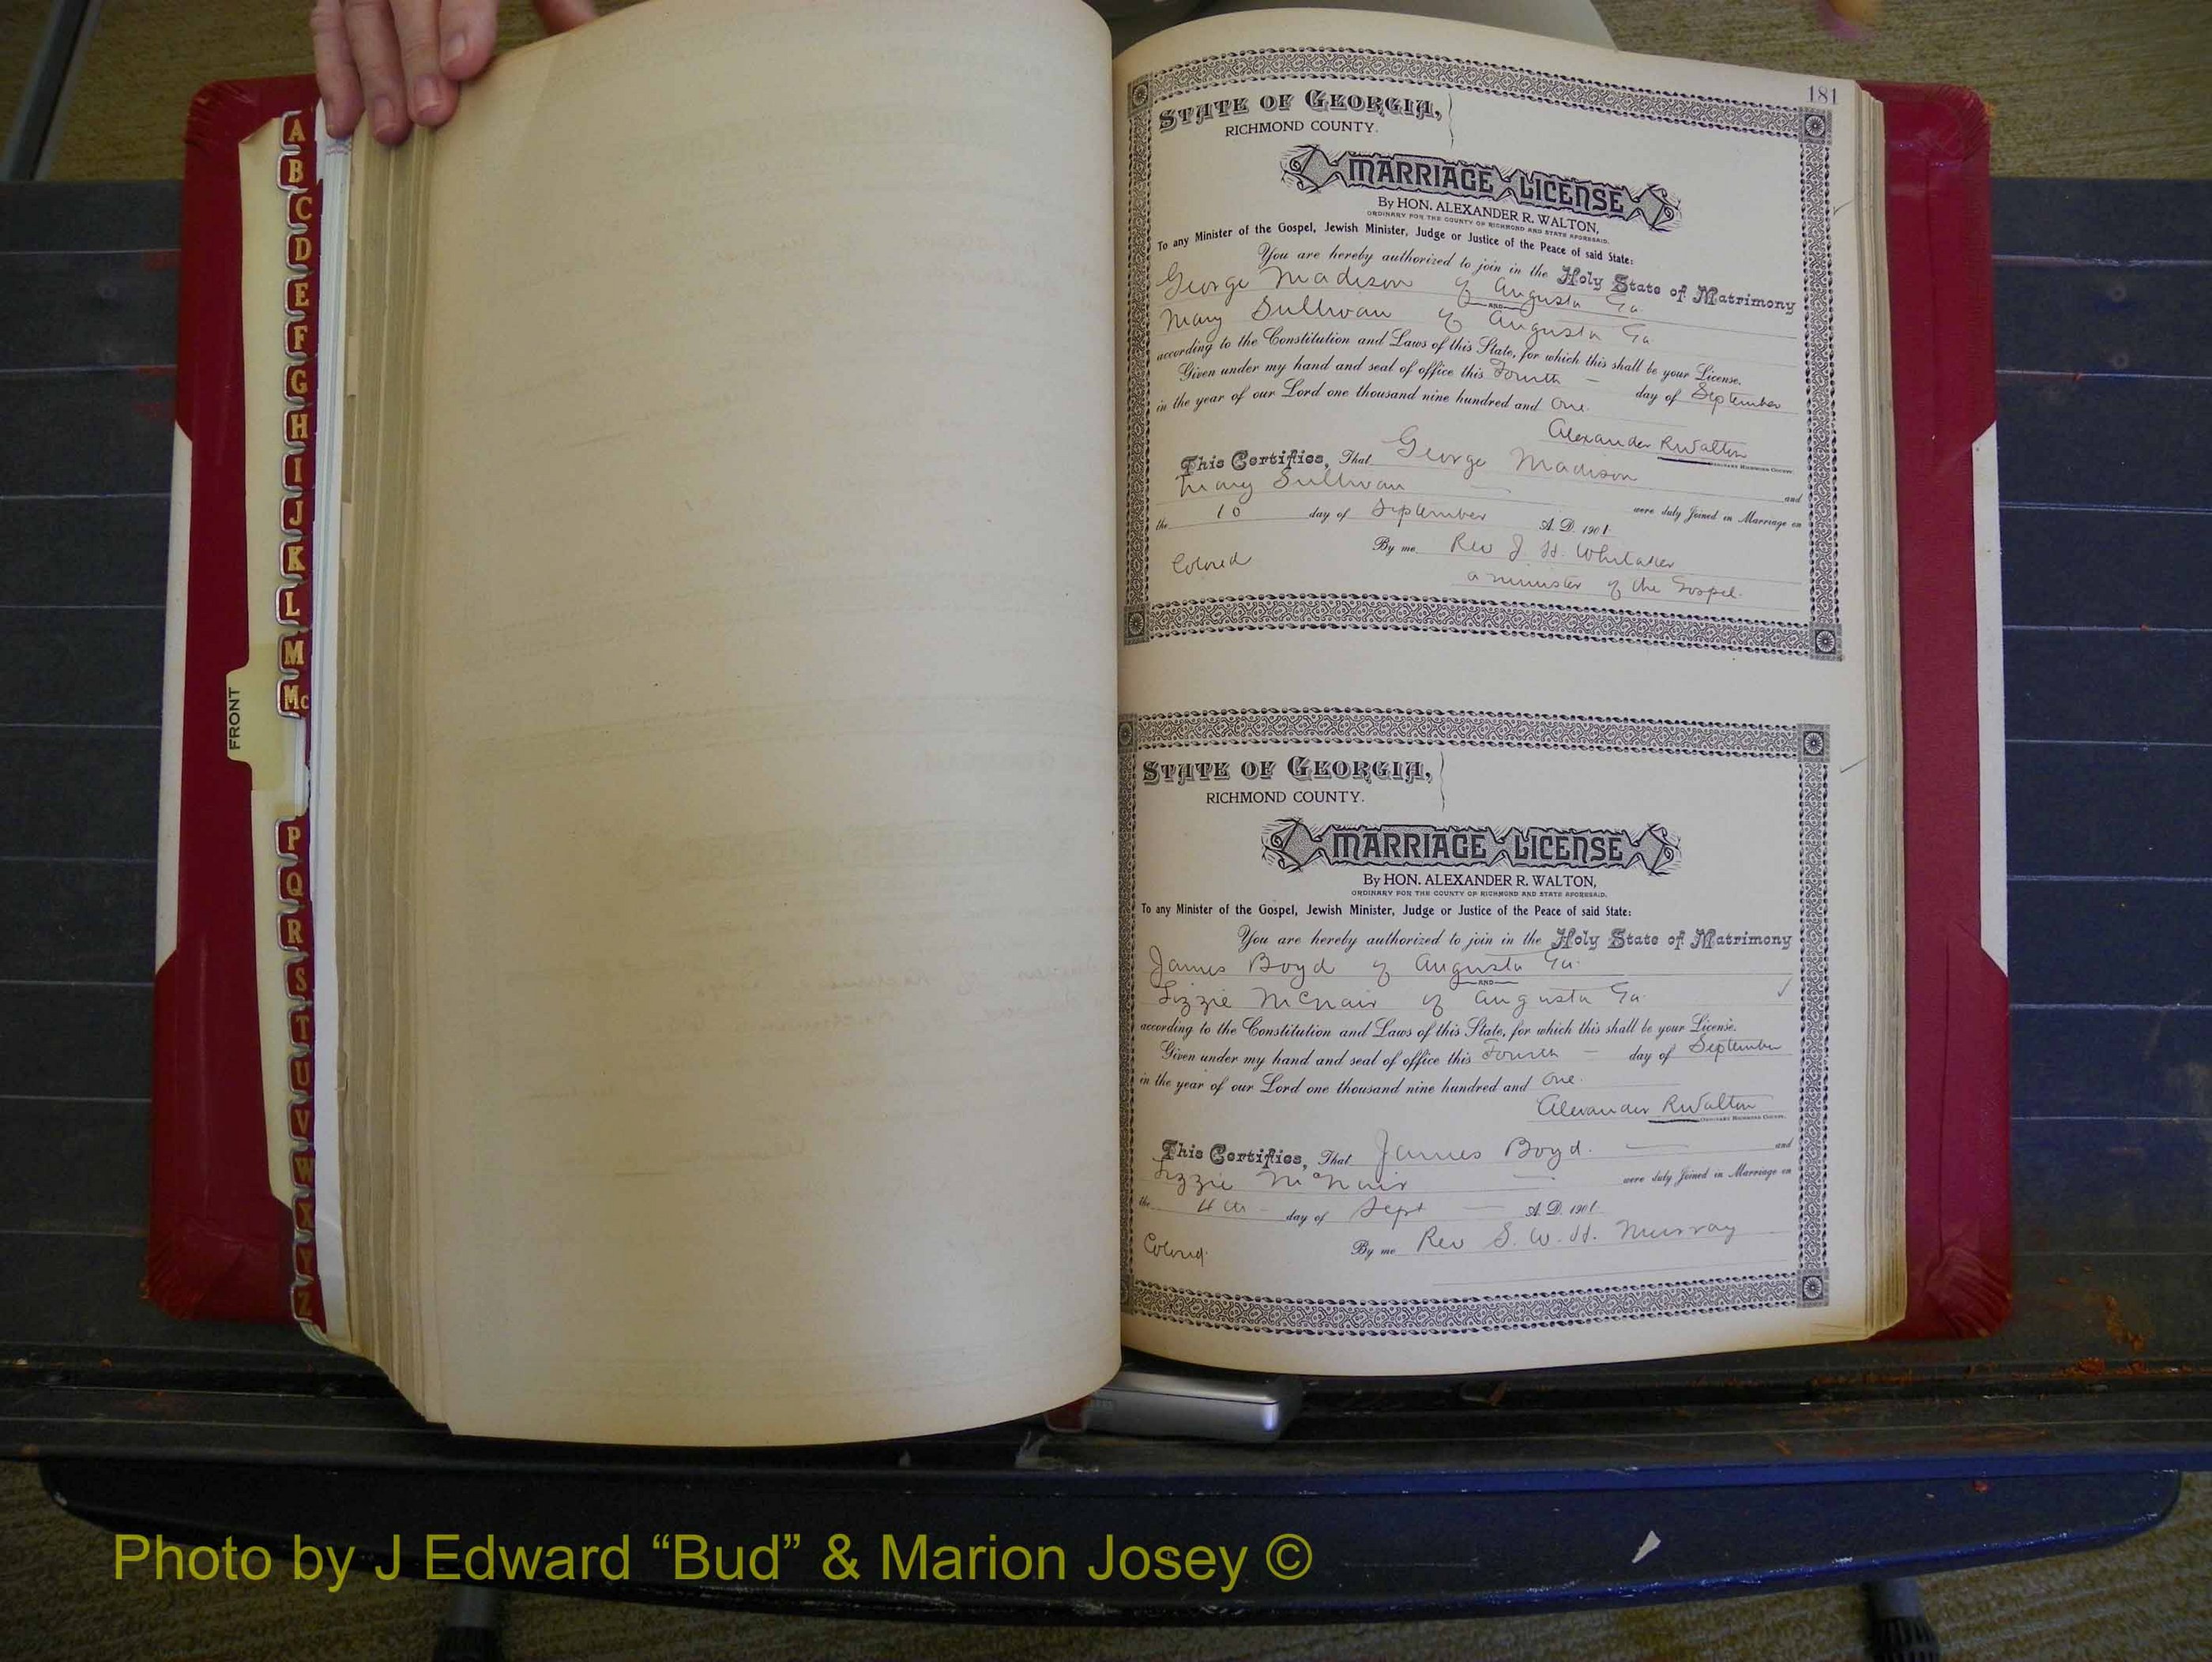 A
B
C
D
E
F
G
H
I
J
K
L
M
Mc
FRONT
P
Q
R
S
T
U
V
W
X
Y
Z
181
STATE OF GEORGIA,
RICHMOND COUNTY.
MARRIAGE LICENSE
By HON. ALEXANDER R. WALTON,
ORDINARY FOR THE COUNTY OF RICHMOND AND STATE AFORESAID.
To any Minister of the Gospel, Jewish Minister, Judge or Justice of the Peace of said State:
You are hereby authorized to join in the Holy State of Matrimony
George Madison of Augusta Ga.
AND
Mary Sullivan of Augusta Ga
according to the Constitution and Laws of this State, for which this shall be your License.
Given under my hand and seal of office this Fourth — day of September
in the year of our Lord one thousand nine hundred and One.
Alexander R Walton
ORDINARY RICHMOND COUNTY.
This Certifies, That George Madison and
Mary Sullivan — were duly Joined in Marriage on
the 10 day of September A. D. 1901.
By me Rev J. H. Whitaker
Colored
a minister of the Gospel.
STATE OF GEORGIA,
RICHMOND COUNTY.
MARRIAGE LICENSE
By HON. ALEXANDER R. WALTON,
ORDINARY FOR THE COUNTY OF RICHMOND AND STATE AFORESAID.
To any Minister of the Gospel, Jewish Minister, Judge or Justice of the Peace of said State:
You are hereby authorized to join in the Holy State of Matrimony
James Boyd of Augusta Ga.
AND
Lizzie McNair of Augusta Ga.
according to the Constitution and Laws of this State, for which this shall be your License.
Given under my hand and seal of office this Fourth — day of September
in the year of our Lord one thousand nine hundred and One.
Alexander R Walton
ORDINARY RICHMOND COUNTY.
This Certifies, That James Boyd. — and
Lizzie McNair — were duly Joined in Marriage on
the 4th — day of Sept — A. D. 1901.
Colored. By me Rev S. W. H. Murray
Photo by J Edward “Bud” & Marion Josey ©